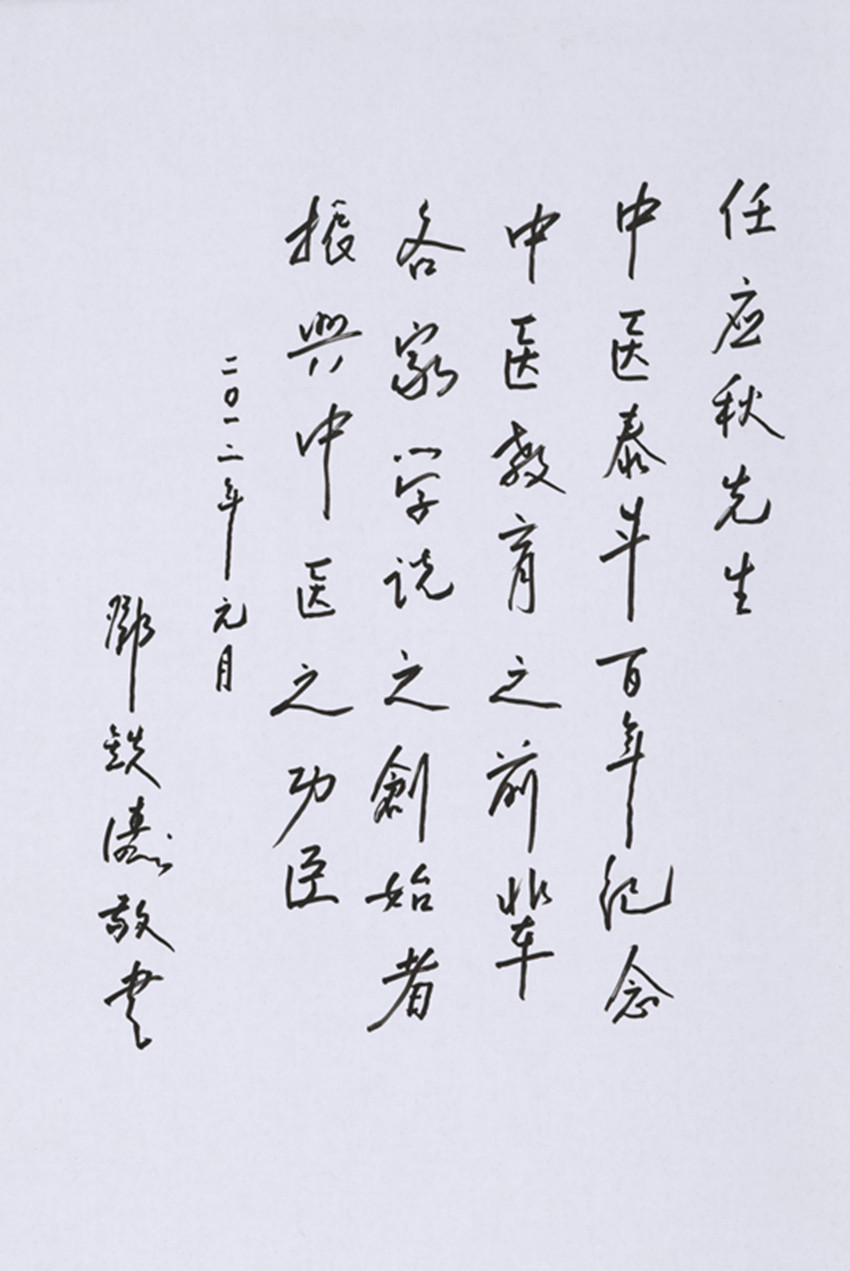 任应秋先生
中医泰斗百年纪念
中医教育之前辈
各家学说之創始者
振兴中医之功臣
二〇一二年元月
鄧鉄涛敬书